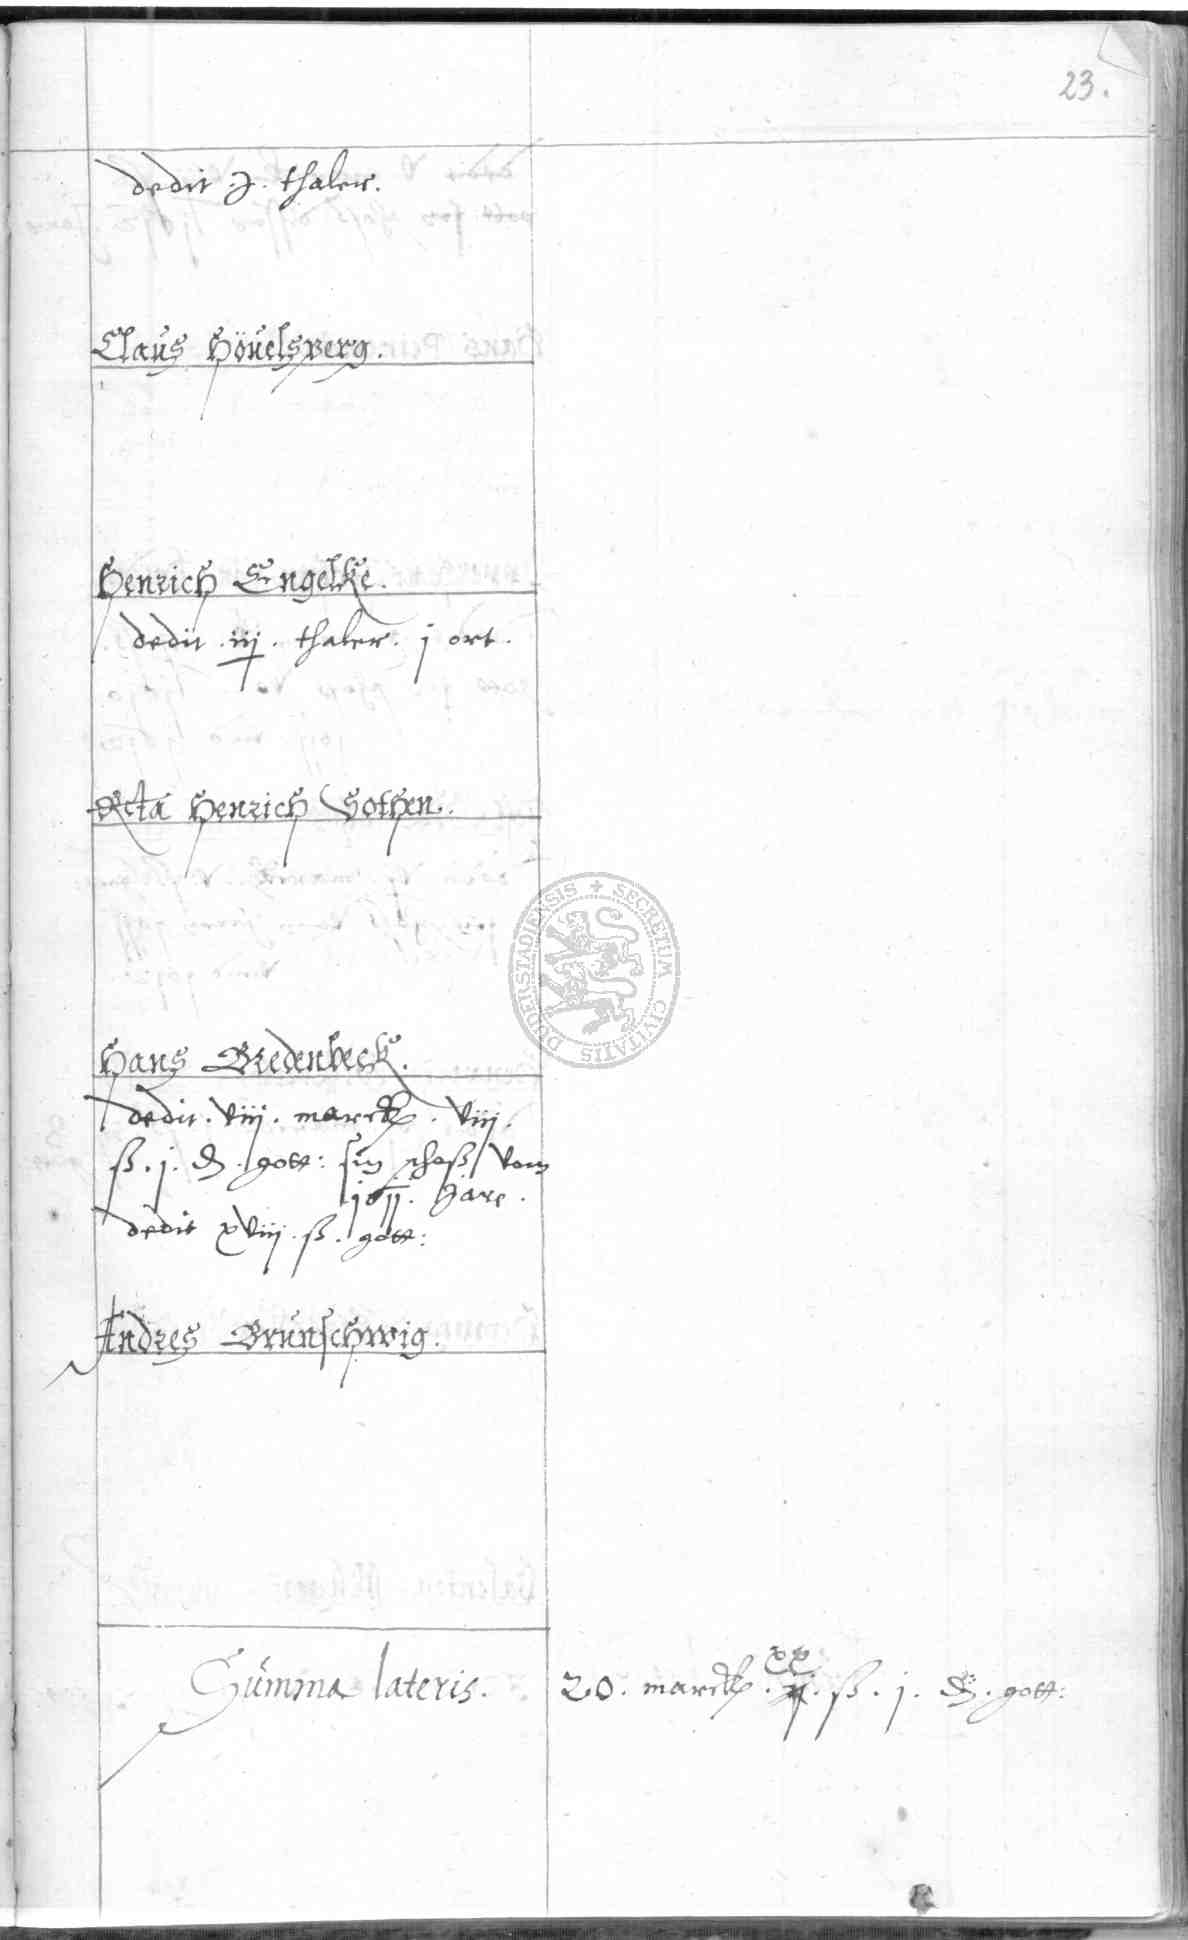 23.
dedit .j. thaler.
Claus Höuelsberg.
Henrich Engelke.
dedit .iij. thaler. j ort.
Relicta Henrich Gothen.
Hans Bredenbeck.
dedit. viij. marck. viij.
ß. j. ₰. gott: sin schoß vom
Jare.
dedit xviij. ß. gott:
SECRETUM CIVITATIS DUDERSTADIENSIS
Andres Brunschwig.
Summa lateris. 20. marck. xx. ß. j. ₰. gott: